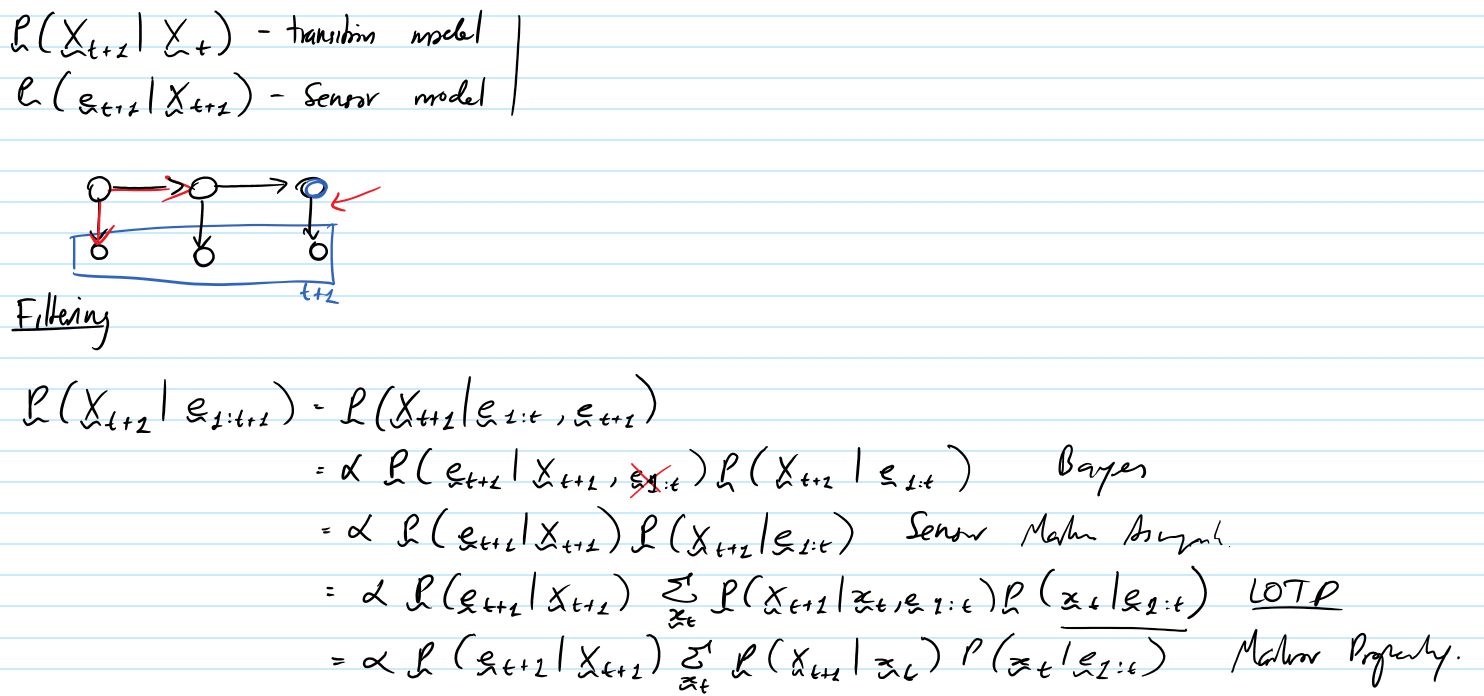 P(X_{t+1} | X_t) - transition model
P(e_{t+1} | X_{t+1}) - Sensor model
t+1
Filtering
P(X_{t+1} | e_{1:t+1}) = P(X_{t+1} | e_{1:t}, e_{t+1})
= α P(e_{t+1} | X_{t+1}, e_{1:t}) P(X_{t+1} | e_{1:t}) Bayes
= α P(e_{t+1} | X_{t+1}) P(X_{t+1} | e_{1:t}) Sensor Markov
= α P(e_{t+1} | X_{t+1}) Σ_{x_t} P(X_{t+1} | x_t, e_{1:t}) P(x_t | e_{1:t}) LOTP
= α P(e_{t+1} | X_{t+1}) Σ_{x_t} P(X_{t+1} | x_t) P(x_t | e_{1:t}) Markov Property.